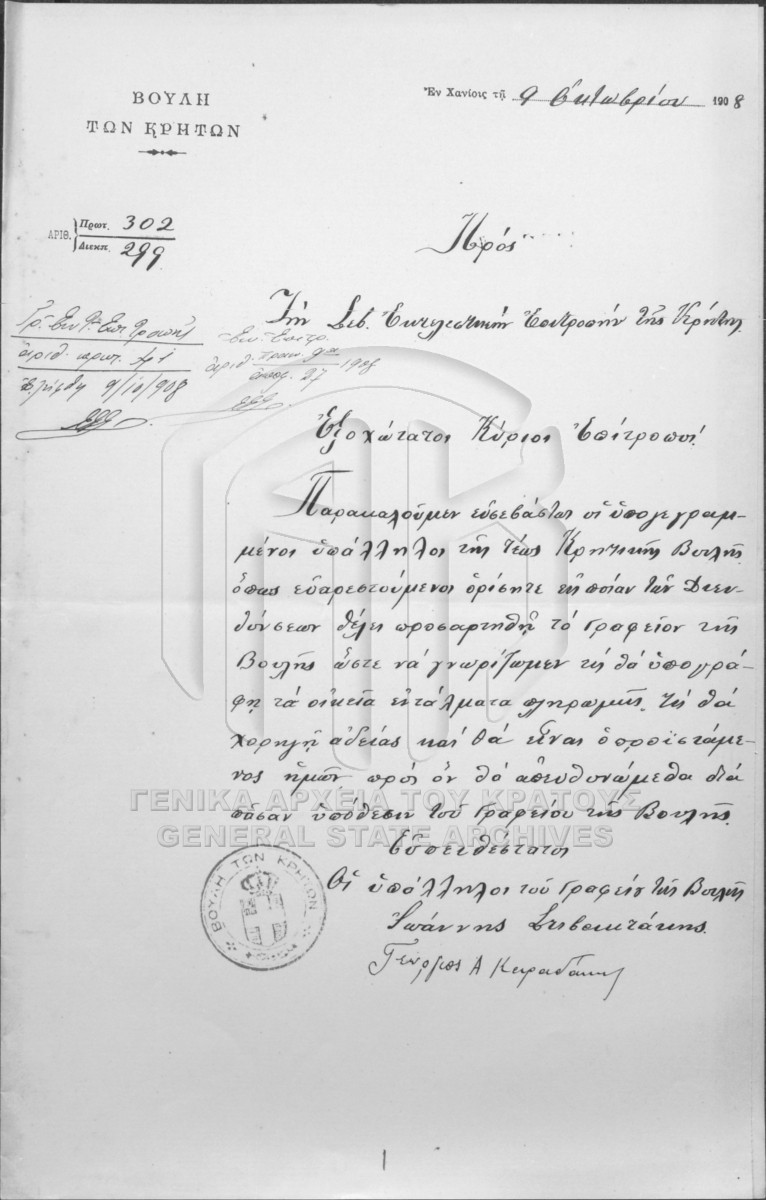 ΒΟΥΛΗ
ΤΩΝ ΚΡΗΤΩΝ
Ἐν Χανίοις τῇ 9 Ὀκτωβρίου 1908
ΑΡΙΘ. Πρωτ. 302
Διεκπ. 299
Πρὸς
Τὴν Σεβ. Ἐκτελεστικὴν Ἐπιτροπὴν τῆς Κρήτης
Γρ. Ἐκτ. Ἐπιτροπῆς
ἀριθ. πρωτ. 41
Ἐλήφθη 9/10/908
Ἐκτ. Ἐπιτρ.
ἀριθ. πρακ. 9α 1908
ἀποφ. 27
Ἐξοχώτατοι Κύριοι Ἐπίτροποι!
Παρακαλοῦμεν εὐσεβάστως οἱ ὑπογεγραμ-
μένοι ὑπάλληλοι τῆς τέως Κρητικῆς Βουλῆς
ὅπως εὐαρεστούμενοι ὁρίσητε εἰς ποίαν τῶν Διευ-
θύνσεων θέλει προσαρτηθῆ τὸ Γραφεῖον τῆς
Βουλῆς ὥστε νὰ γνωρίζωμεν τίς θὰ ὑπογρά-
φῃ τὰ οἰκεῖα ἐντάλματα πληρωμῆς, τίς θὰ
χορηγῇ ἀδείας καὶ θὰ εἶναι ὁ προϊστάμε-
νος ἡμῶν πρὸς ὃν θὰ ἀπευθυνώμεθα διὰ
πᾶσαν ὑπόθεσιν τοῦ Γραφείου τῆς Βουλῆς.
Εὐπειθέστατοι
Οἱ ὑπάλληλοι τοῦ Γραφείου τῆς Βουλῆς
Ἰωάννης Σειβοκτάκης
Γεώργιος Α
ΒΟΥΛΗ ΤΩΝ ΚΡΗΤΩΝ
ΓΕΝΙΚΑ ΑΡΧΕΙΑ ΤΟΥ ΚΡΑΤΟΥΣ
GENERAL STATE ARCHIVES